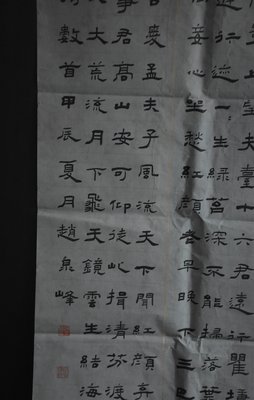 夫臺十六君遠行瞿塘
行迹一生綠苔深不能掃落葉
妾心坐愁紅顏老早晚下三巴
吾愛孟夫子風流天下聞紅顏弃
事君高山安可仰徒此揖清芬渡
大荒流月下飛天鏡雲生結海
數首甲辰夏月趙泉峰